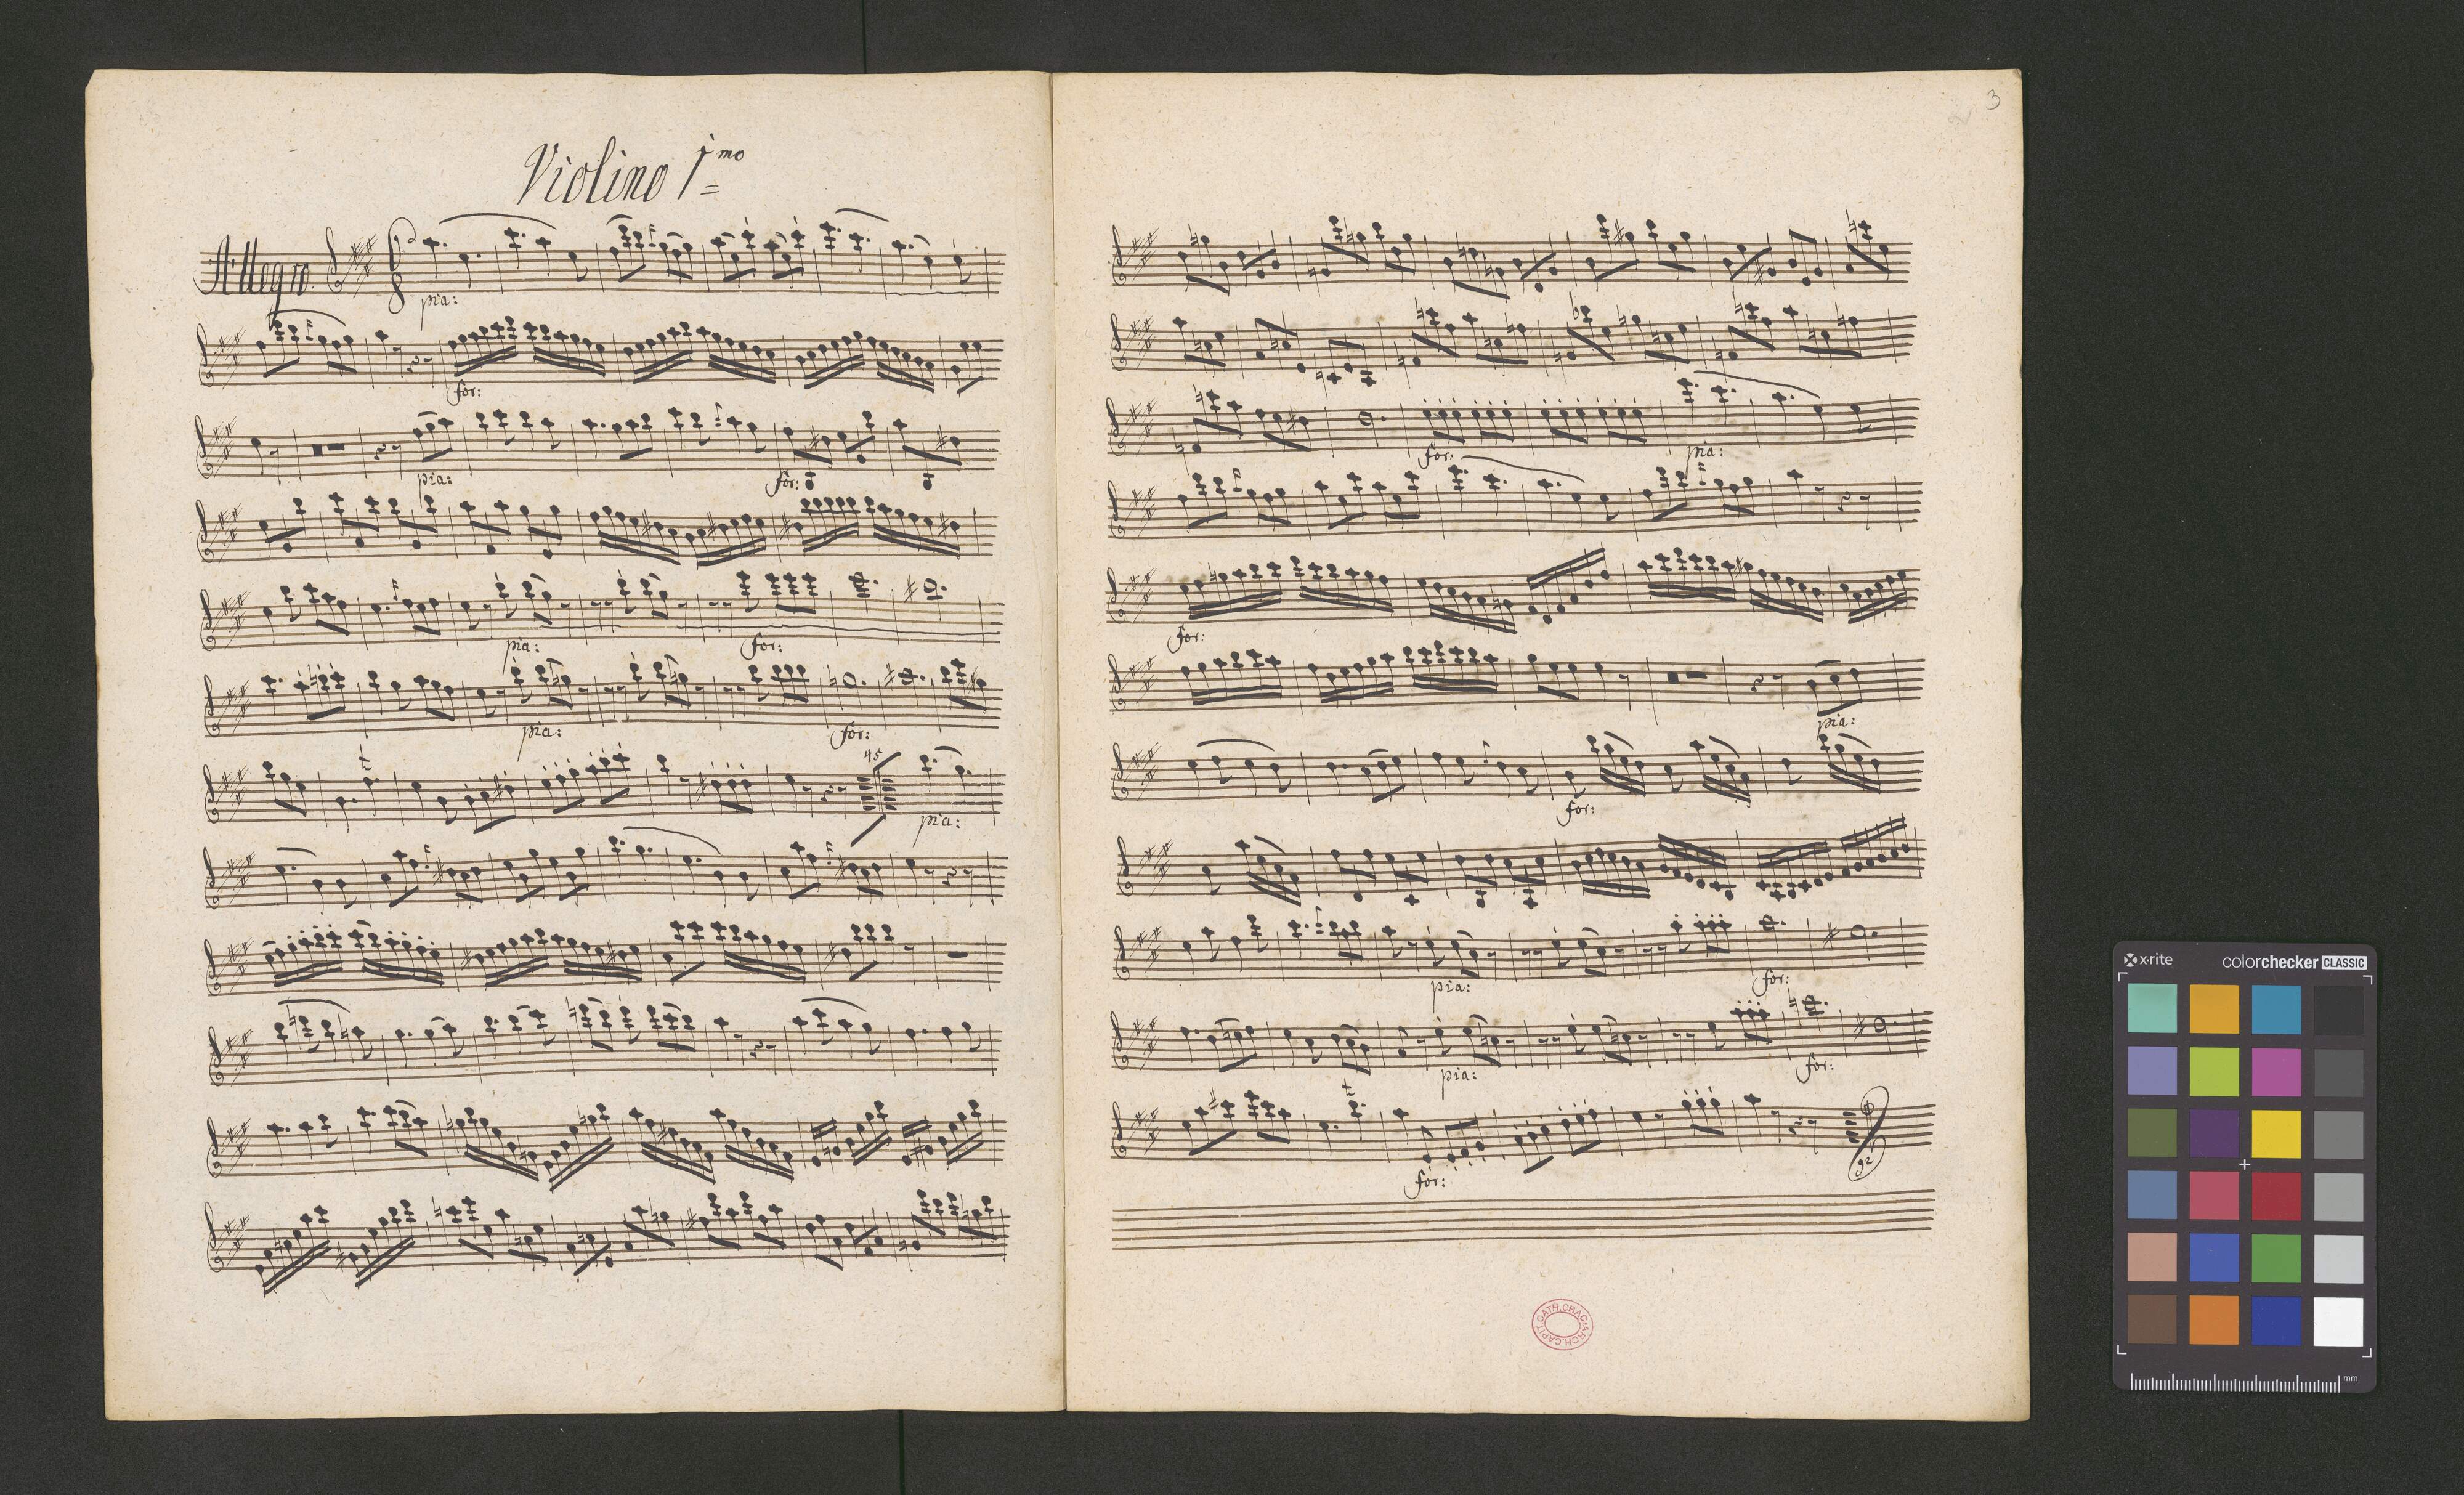 Violino 1mo
Allegro.
6
8
pia:
for:
pia: for:
pia: for:
pia: for:
45
pia:
3
for: pia:
for:
pia:
for:
pia: for:
pia: for:
for:
92
ARCH.CAPIT.CATH.CRAC
x-rite colorchecker CLASSIC
mm